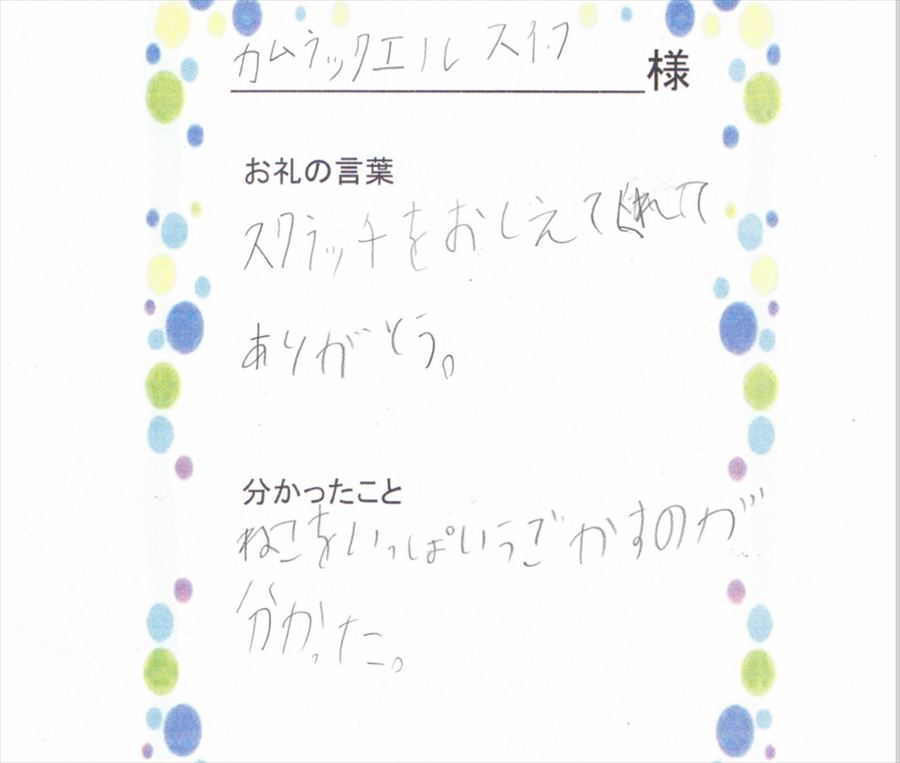 カムラックエル スイフ 様
お礼の言葉
スクラッチをおしえてくれて
ありがとう。
分かったこと
ねこをいっぱいうごかすのが
分かった。